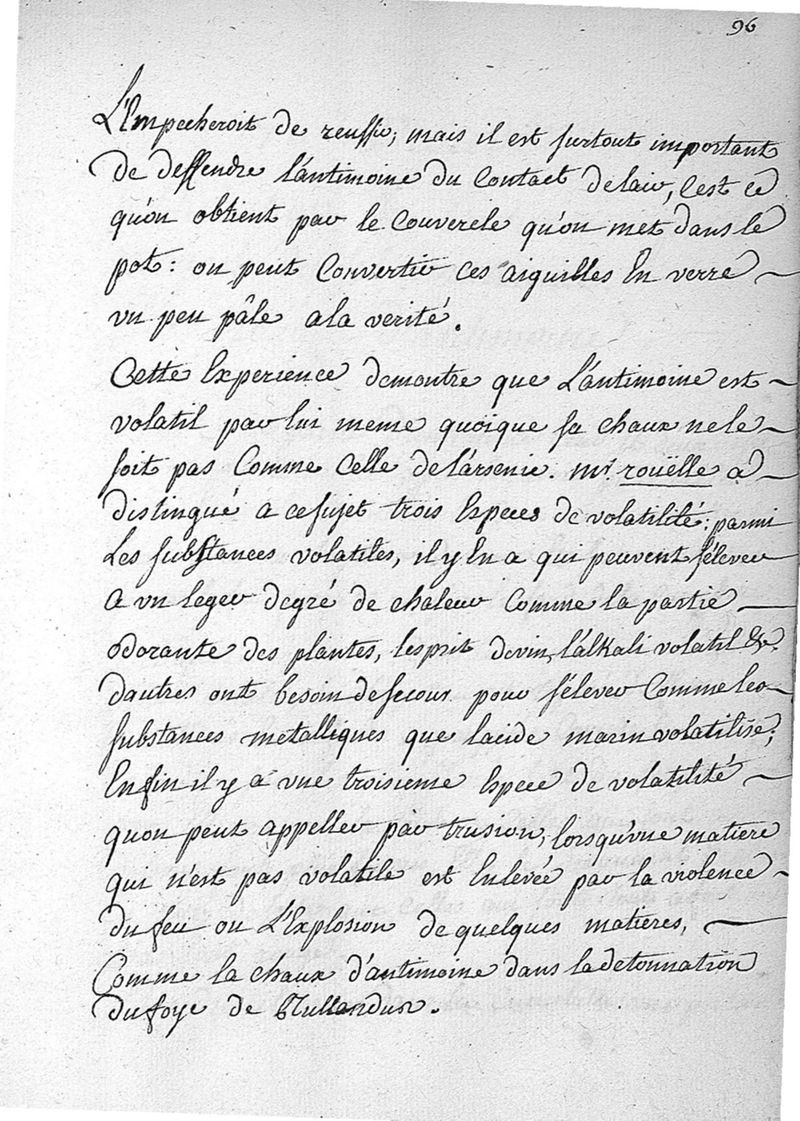 96
L'Empecheroit de reussir; mais il est surtout important
de deffendre l'antimoine du contact de lair, c'est ce
qu'on obtient par le couvercle qu'on met dans le
pot: on peut Convertir ces aiguilles En verre
vn peu pâle a la verité.
Cette Experience demontre que L'antimoine est
volatil par lui meme quoique sa chaux ne le
soit pas Comme Celle de l'arsenic. mr. rouëlle a
distingué a ce sujet trois Especes de volatilité; parmi
Les substances volatiles, il y En a qui peuvent s'élever
a vn leger degré de chaleur comme la partie
odorante des plantes, lesprit de vin, l'alkali volatil &c.
dautres ont besoin de secours pour s'élever Comme les
substances metalliques que lacide marin volatilise;
Enfin il y a vne troisieme Espece de volatilité
quon peut appeller par trusion, lorsqu'vne matiere
qui n'est pas volatile est Enlevée par la violence
du feu ou L'Explosion de quelques matieres,
Comme la chaux d'antimoine dans la detonnation
du foye de Rullandus.